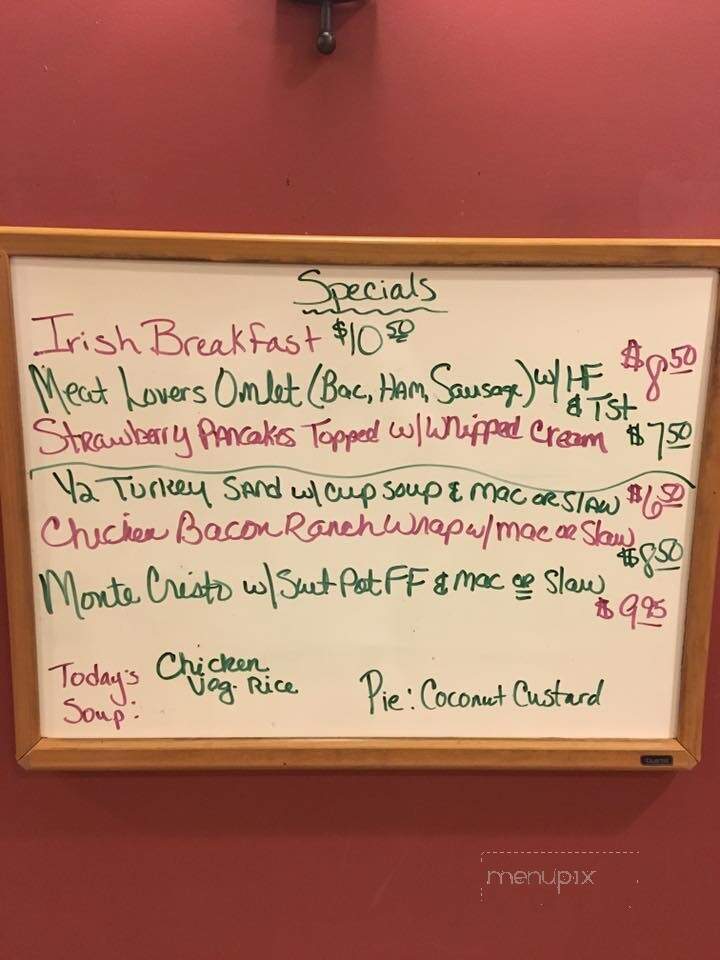 Specials
Irish Breakfast $10 50
Meat Lovers Omlet (Bac, Ham, Sausage) w/ HF & Tst $8 50
Strawberry Pancakes Topped w/ Whipped Cream $7 50
1/2 Turkey Sand w/ cup soup & mac or slaw $6 50
Chicken Bacon Ranch Wrap w/ mac or Slaw $8 50
Monte Cristo w/ Swt Pot FF & mac or Slaw $9 95
Today's Soup: Chicken Veg. Rice
Pie: Coconut Custard
menupix